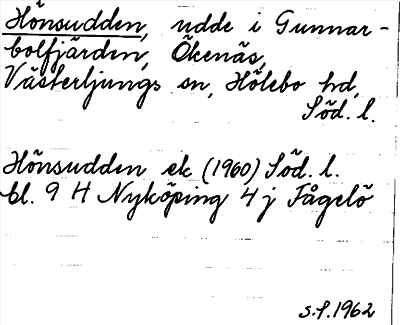 Hönsudden, udde i Gunnar-
bolfjärden, Ökenäs,
Västerljungs sn, Hölebo hd,
Söd. l.
Hönsudden ek (1960) Söd. l.
bl. 9 H Nyköping 4 j Fågelö
s.f. 1962